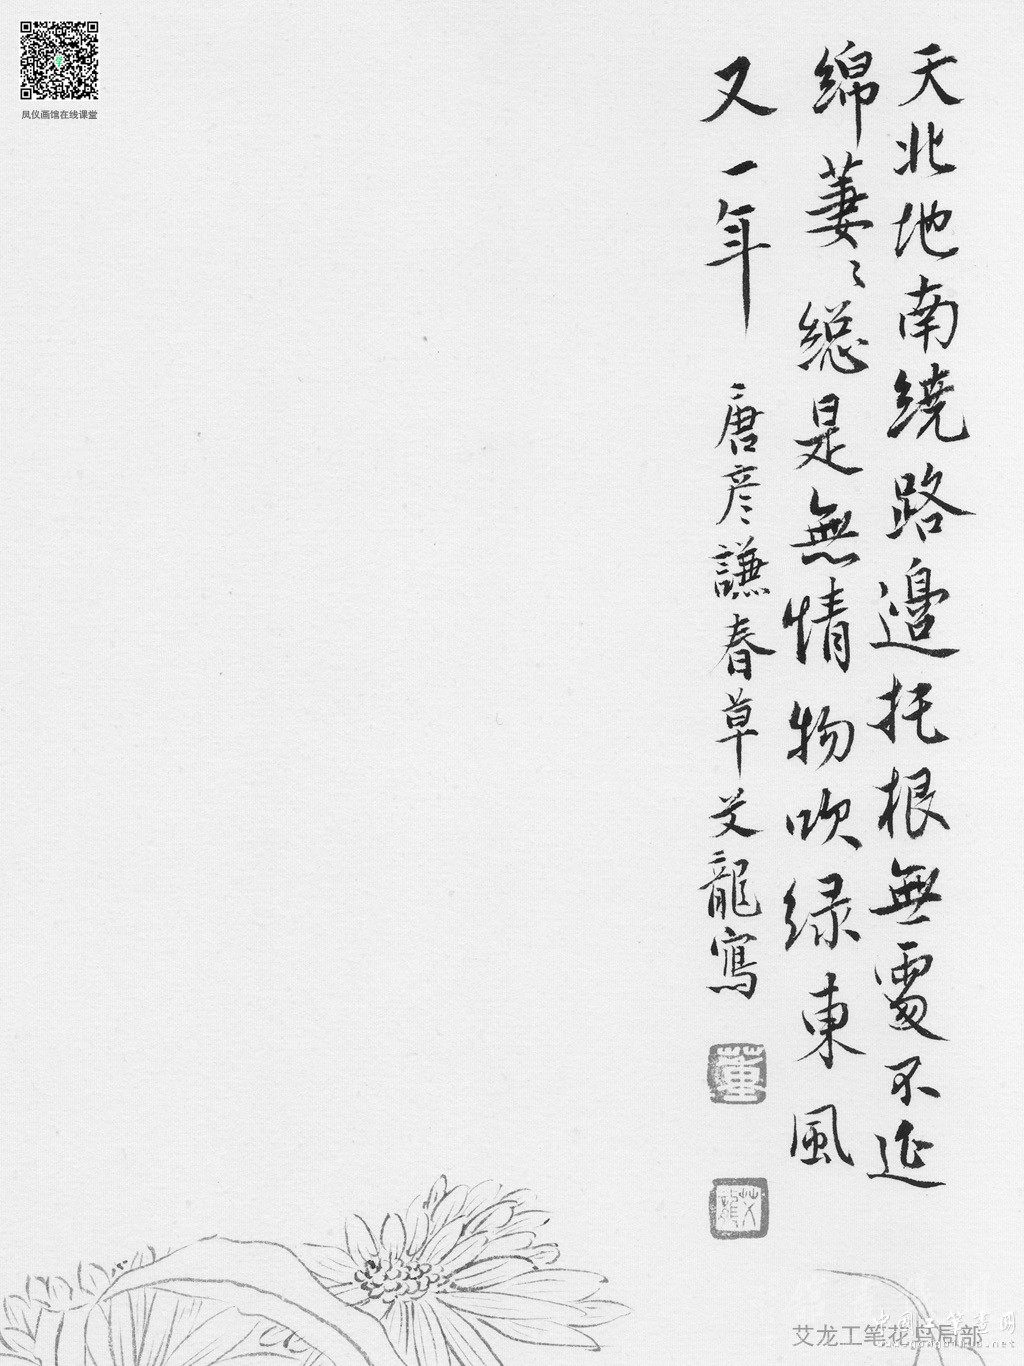 天北地南繞路邊托根無處不延
綿萋〻總是無情物吹绿東風
又一年
唐彦謙春草艾龍寫
董
艾龍
凤仪画馆在线课堂
艾龙工笔花鸟局部
中国工笔画网